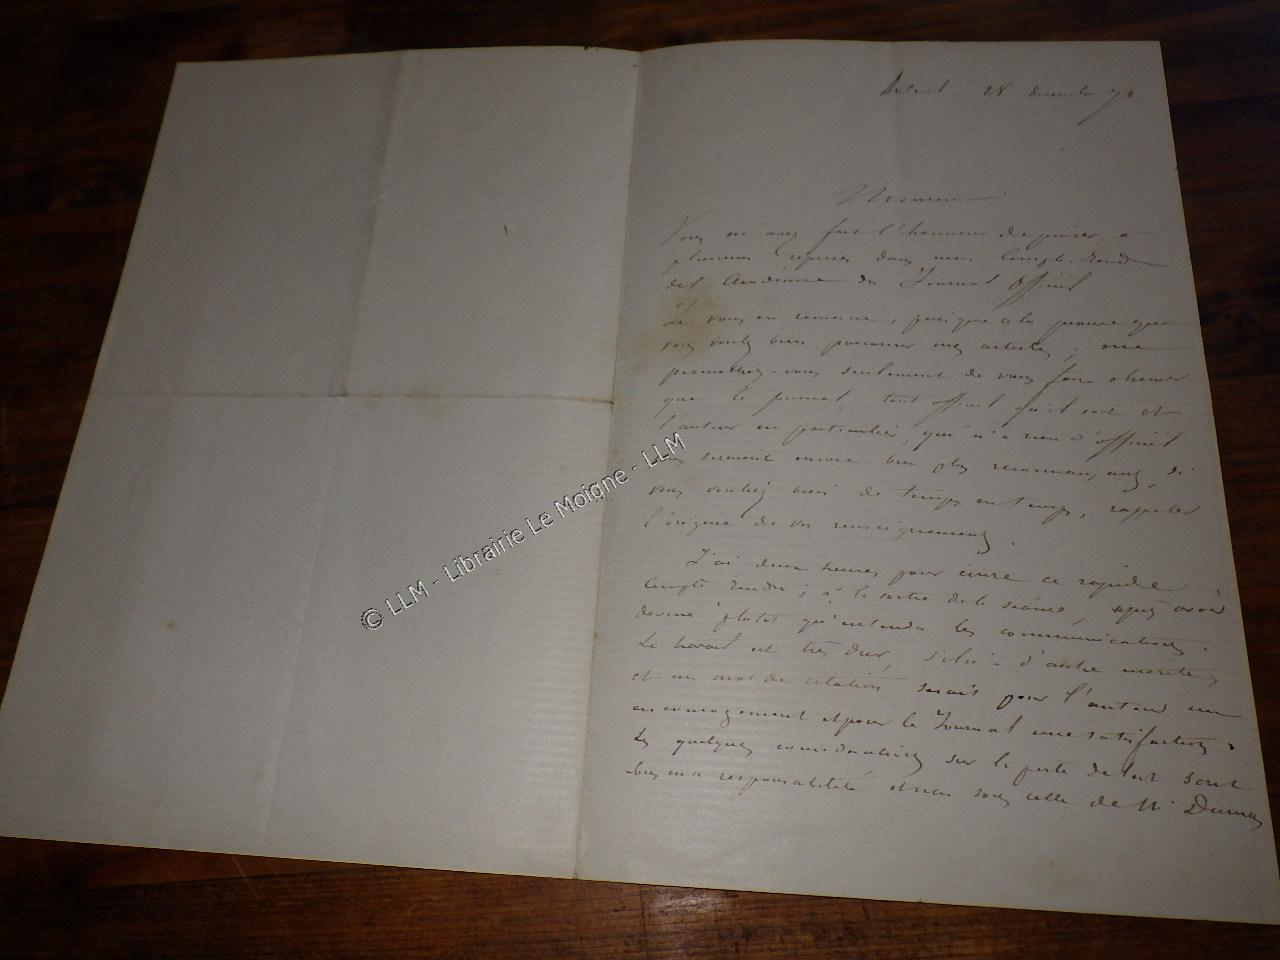 Auteuil 28 décembre 70
Monsieur
Vous m'avez fait l'honneur de puiser à
plusieurs reprises dans mon Compte-Rendu
del' Académie du Journal Officiel
Je vous en remercie, puisque cela prouve que
vous voulez bien parcourir mes articles ; me
permettrez-vous seulement de vous faire observer
que le journal, tout officiel qu'il soit et
l'auteur en particulier, qui n'a rien d'officiel
vous seraient encore bien plus reconnaissants, si
vous vouliez bien de temps en temps, rappeler
l'origine de vos renseignements.
J'ai deux heures pour écrire ce rapide
Compte Rendu ; à la sortie de la séance, après avoir
deviné plutot qu'entendu les communications.
Le travail est très dur, s'il n'a d'autre mérite,
et un mot de citation serait pour l'auteur un
encouragement et pour le Journal une satisfaction.
Les quelques considérations sur la perte de lait sont
sous ma responsabilité et non sous celle de Mr Dumas
© LLM - Librairie Le Moigne - LLM